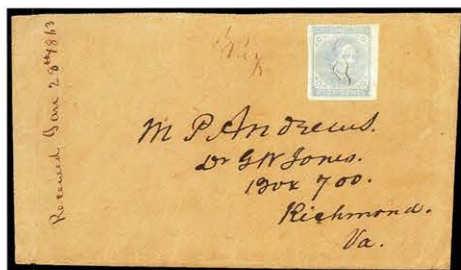 Received Jane 28th 1863
M P Andrews.
Dr GW Jones.
Box 700.
Richmond.
Va.